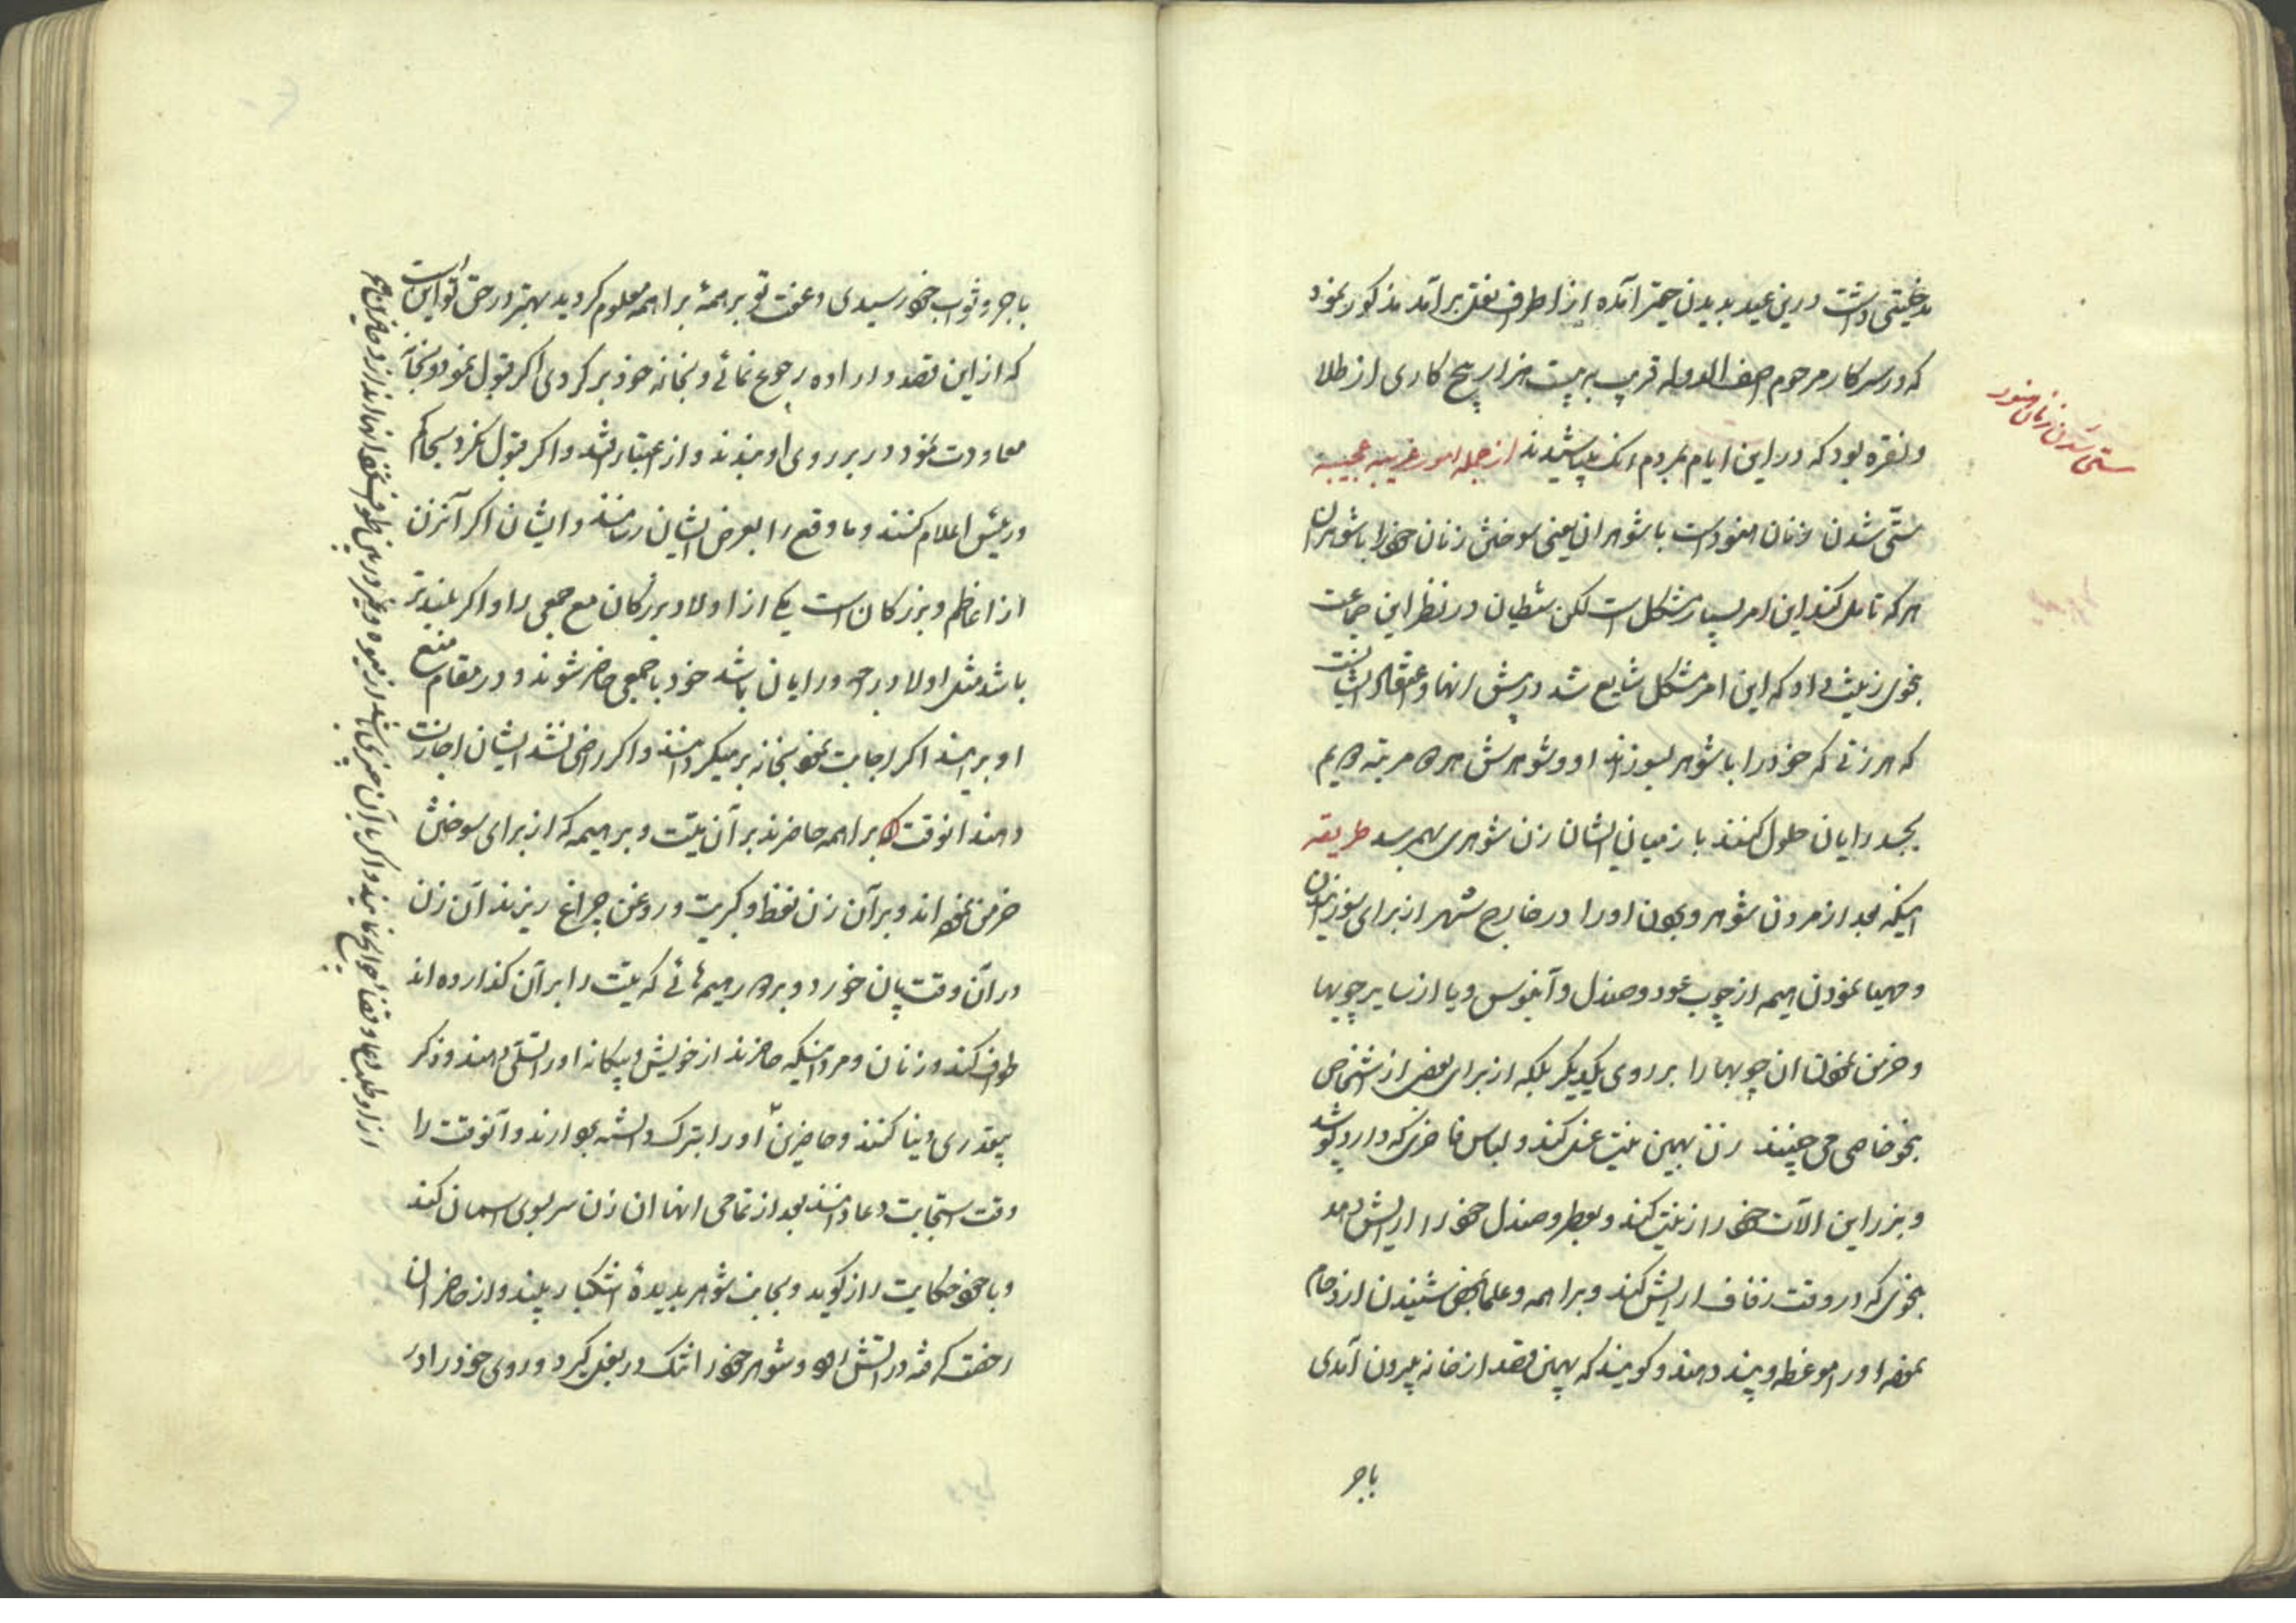 مدخلیتی داشت درین عید بدیدن حقیر آمده از اطراف نقل برآمد مذکور نمود
که در سرکار مرحوم آصف الدوله قریب به بیست هزار پیچ کاری از طلا
و نقره بود که در این ایام بمردم رنک میپاشیدند از جمله امور غریبه عجیبه
ستّی شدن زنان هنود است با شوهران یعنی سوختن زنان خود را با شوهران
هر که تامل کند این امر بسیار مشکل است لکن شیطان در نظر این جماعت
بنحوی زینت داد که این امر مشکل شایع شد در پیش انها و اعتقاد ایشانست
که هر زنی که خود را با شوهر بسوزاند او و شوهرش هر دو مرتبه دویم
بجسد رایان حلول کنند باز میان ایشان زن شوهری بهم رسد طریقه
اینکه بعد از مردن شوهر و بردن او را در خارج شهر از برای سوزانیدن
و مهیا نمودن هیمه از چوب عود و صندل و آبنوس و یا از سایر چوبها
و خرمن نمودن ان چوبها را بر روی یکدیکر بلکه از برای بعض از اشخاص
بنحو خاصی می چینند زن بهمین نیت غسل کند و لباس فاخری که دارد پوشد
و بزر این الات خود را زینت کند و بعطر و صندل خود را ارایش دهد
بنحوی که در وقت زفاف ارایش کند و براهمه و علما بمحض شنیدن ازدحام
نموده او را موعظه و پند دهند و کویند که بهمین قصد از خانه بیرون آمدی
باجر
ستی شدن زنان هنود
باجر و ثواب خود رسیدی و عفت تو بر همهٔ براهمه معلوم کردید بهتر در حق تو این است
که از این قصد و اراده رجوع نمائی و بخانه خود بر کردی اکر قبول نمود و بخانه
معاودت نمود در بر روی او بندند و از اعتبار افتد و اکر قبول نکرد بحاکم
و رئیس اعلام کنند و ما وقع را بعرض ایشان رسانند و ایشان اکر آنزن
از اعاظم و بزرکان است یکی از اولاد بزرکان مع جمعی را و اکر بلندتر
باشد مثل اولاد راجه و رایان باشد خود با جمعی حاضر شوند و در مقام منع
او برایند اکر اجابت نمود بخانه بر میکردانند و اکر راضی نشد ایشان اجازت
دهند انوقت براهمه حاضرند بر آن میّت و بر هیمه که از برای سوختن
خرمن نموده اند و بر آن زن نفط و کبریت و روغن چراغ ریزند آن زن
در آن وقت پان خورد و بر دور هیمه ئی که میّت را بر آن کذارده اند
طواف کند و زنان و مردانیکه حاضرند از خویش و بیکانه او را تسلّی دهند و ذکر
بیقدری دنیا کنند و حاضرین او را متبرک دانسته و آنوقت را
وقت استجابت دعا دانند بعد از تمامی انها ان زن سر بسوی اسمان کند
و با خود حکایت راز کوید و بجانب شوهر بدیدهٔ اشکبار بیند و از حاضران
رخصت کرفته در آتش رود و شوهر خود را تنک در بغل کیرد و روی خود را در